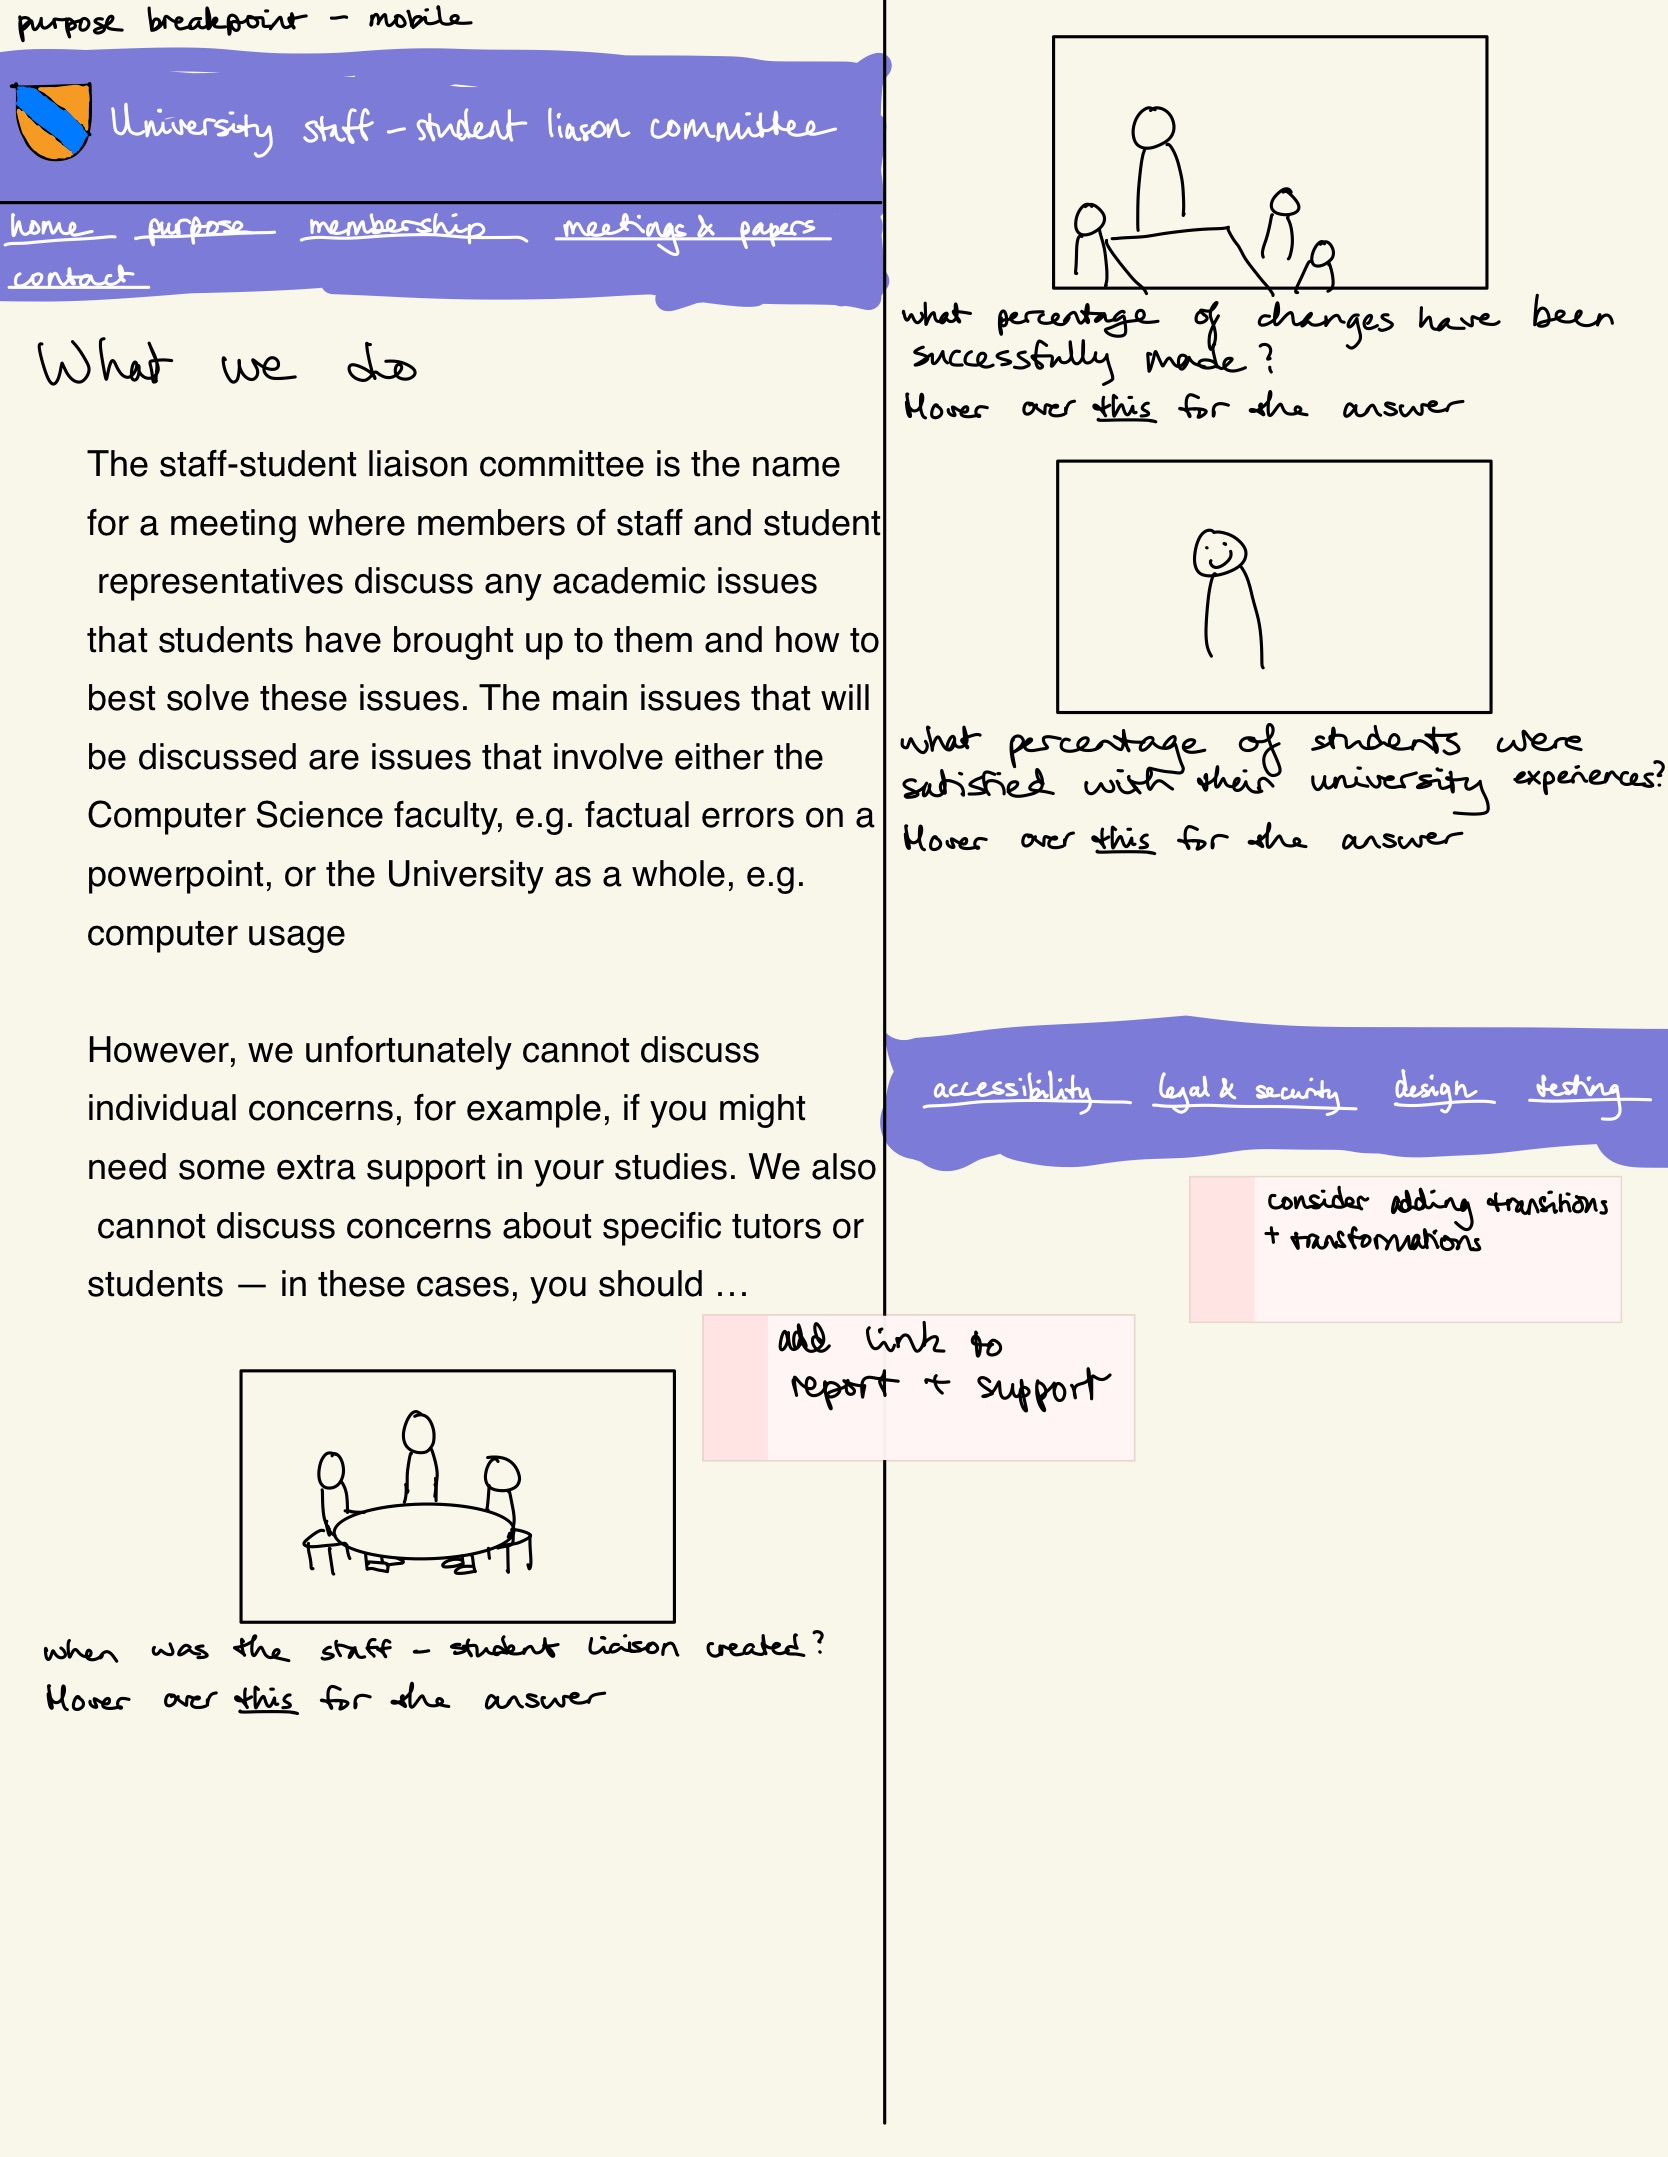 purpose breakpoint - mobile
University staff - student liason committee
home purpose membership meetings & papers
contact
What we do
The staff-student liaison committee is the name
for a meeting where members of staff and student
representatives discuss any academic issues
that students have brought up to them and how to
best solve these issues. The main issues that will
be discussed are issues that involve either the
Computer Science faculty, e.g. factual errors on a
powerpoint, or the University as a whole, e.g.
computer usage
However, we unfortunately cannot discuss
individual concerns, for example, if you might
need some extra support in your studies. We also
cannot discuss concerns about specific tutors or
students — in these cases, you should …
add link to
report + support
when was the staff - student liaison created?
Hover over this for the answer
what percentage of changes have been
successfully made?
Hover over this for the answer
what percentage of students were
satisfied with their university experiences?
Hover over this for the answer
accessibility legal & security design testing
consider adding transitions
+ transformations